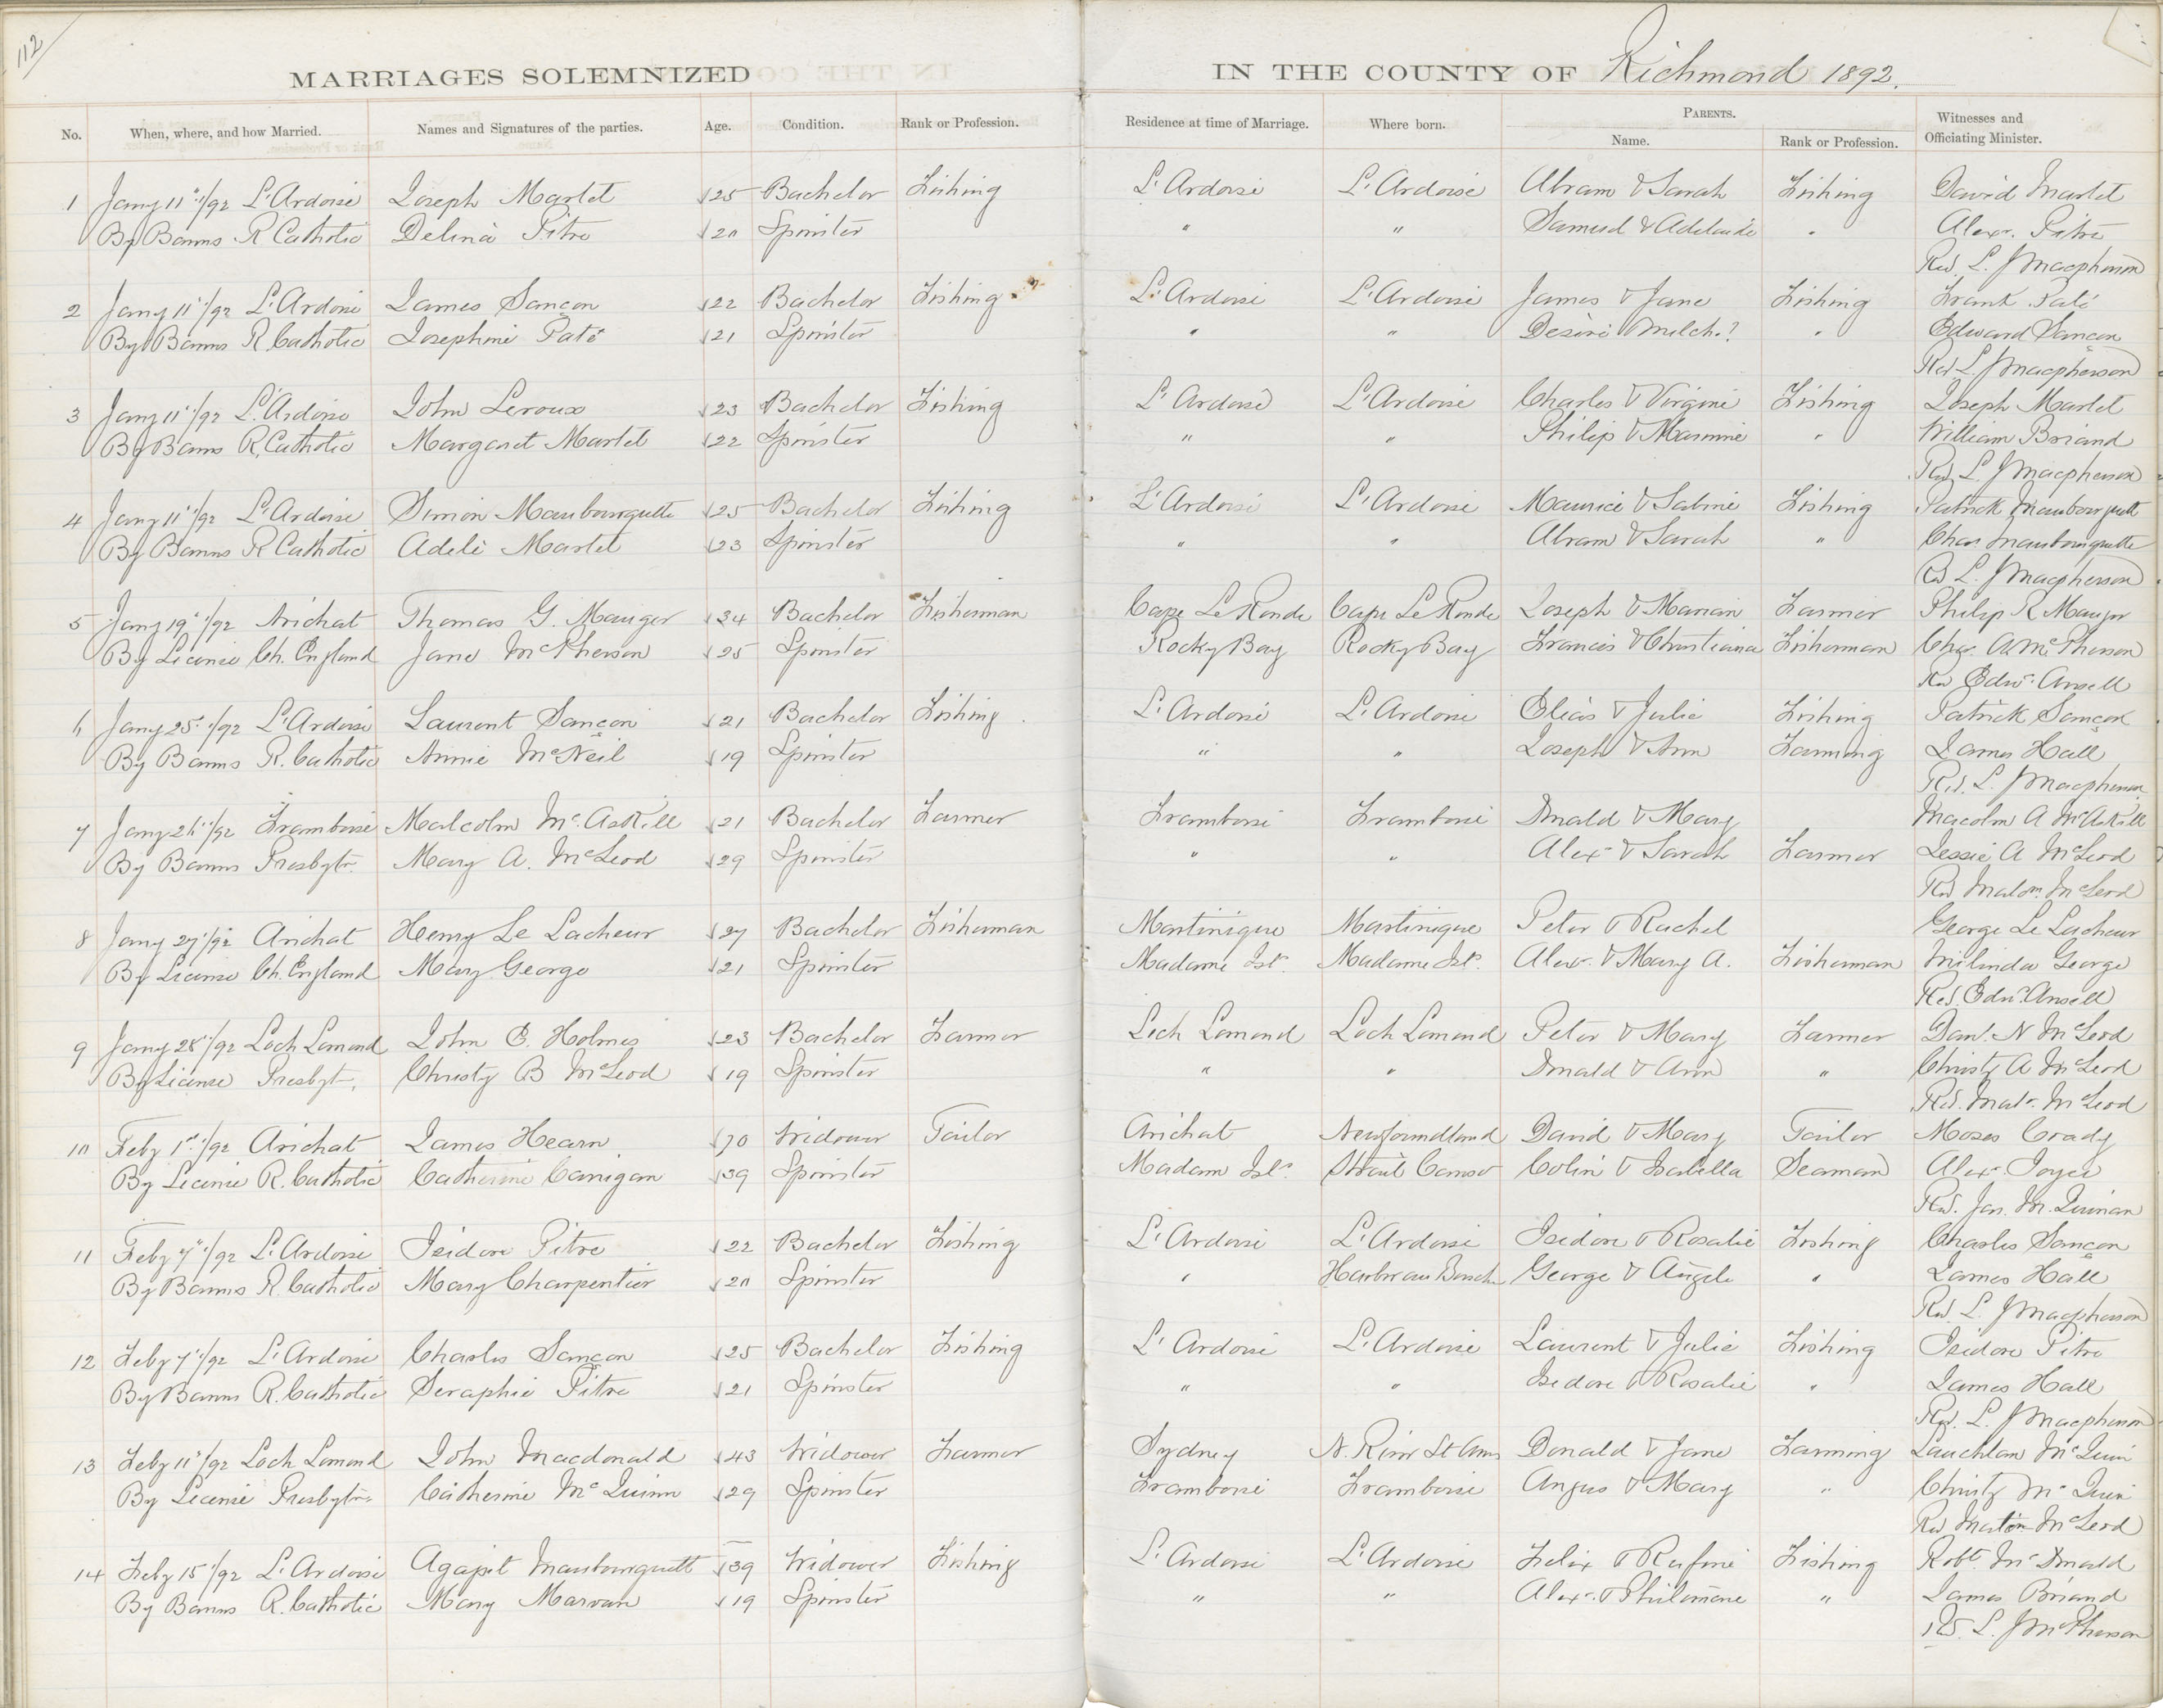 112
MARRIAGES SOLEMNIZED IN THE COUNTY OF Richmond 1892.
No. When, where, and how Married. Names and Signatures of the parties. Age. Condition. Rank or Profession. Residence at time of Marriage. Where born. PARENTS. Name. Rank or Profession. Witnesses and Officiating Minister.
1 Jany 11"/92 L'Ardoise Joseph Martet 25 Bachelor Fishing L'Ardoise L'Ardoise Abram & Sarah Fishing David Martet
By Banns R Catholic Delina Pitre 20 Spinster " " Samuel & Adelaide " Alexr. Pitre
Rev. L. J Macpherson
2 Jany 11"/92 L'Ardoise James Sançon 22 Bachelor Fishing L'Ardoise L'Ardoise James & Jane Fishing Frank Paté
By Banns R. Catholic Josephine Paté 21 Spinster " " Desire & Milch.? " Edward Sançon
Rev L. J Macpherson
3 Jany 11"/92 L'Ardoise John Leroux 23 Bachelor Fishing L'Ardoise L'Ardoise Charles & Virginie Fishing Joseph Martet
By Banns R. Catholic Margaret Martet 22 Spinster " " Philip & " William Briand
Rev L. J Macpherson
4 Jany 11"/92 L'Ardoise Simon Maubourquette 25 Bachelor Fishing L'Ardoise L'Ardoise Maurice & Sabine Fishing Patrick Maubourquett
By Banns R Catholic Adele Martet 23 Spinster " " Abram & Sarah " Chas. Maubourquette
Rev L. J Macpherson
5 Jany 19"/92 Arichat Thomas G. Mauger 34 Bachelor Fisherman Cape LeRonde Cape LeRonde Joseph & Marian Farmer Philip R Mauger
By License Ch. England Jane McPherson 25 Spinster Rocky Bay Rocky Bay Francis & Christiana Fisherman Chas. A. McPherson
Rev Edw. Ansell
6 Jany 25"/92 L'Ardoise Laurent Sançon 21 Bachelor Fishing L'Ardoise L'Ardoise Elias & Julie Fishing Patrick Sançon
By Banns R. Catholic Annie McNeil 19 Spinster " " Joseph & Ann Farming James Hall
Rev. L. J Macpherson
7 Jany 26"/92 Framboise Malcolm McAskill 21 Bachelor Farmer Framboise Framboise Donald & Mary Macolm A McAskill
By Banns Presbytn. Mary A. McLeod 29 Spinster " " Alexr & Sarah Farmer Jessie A McLeod
Rev Malcm. McLeod
8 Jany 27"/92 Arichat Henry Le Lacheur 27 Bachelor Fisherman Martinique Martinique Peter & Rachel George Le Lacheur
By License Ch. England Mary George 21 Spinster Madame Isl. Madame Isl. Alexr. & Mary A. Fisherman Milinda George
Rev. Edw. Ansell
9 Jany 28"/92 Loch Lomond John C. Holmes 23 Bachelor Farmer Loch Lomond Loch Lomond Peter & Mary Farmer Danl. N McLeod
By License Presbyt. Christy B McLeod 19 Spinster " " Donald & Ann " Christy A McLeod
Rev. Malc. McLeod
10 Feby 1st/92 Arichat James Hearn 70 Widower Tailor Arichat Newfoundland David & Mary Tailor Moses Grady
By License R. Catholic Catherine Carrigan 39 Spinster Madam Isl. Strait Canso Colin & Isabella Seaman Alexr. Joyce
Rev. Jas. M. Quinan
11 Feby 7"/92 L'Ardoise Isidore Pitre 22 Bachelor Fishing L'Ardoise L'Ardoise Isidore & Rosalie Fishing Charles Sançon
By Banns R. Catholic Mary Charpentier 20 Spinster " Harbr au Bouche George & Angele " James Hall
Rev L. J Macpherson
12 Feby 7"/92 L'Ardoise Charles Sançon 25 Bachelor Fishing L'Ardoise L'Ardoise Laurent & Julie Fishing Isidore Pitre
By Banns R. Catholic Seraphie Pitre 21 Spinster " " Isidore & Rosalie " James Hall
Rev. L. J Macpherson
13 Feby 11"/92 Loch Lomond John Macdonald 43 Widower Farmer Sydney N. River St Anns Donald & Jane Farming Lauchlan McQuin
By License Presbytn. Catherine McQuinn 29 Spinster Framboise Framboise Angus & Mary " Christy McQuin
Rev McLeod
14 Feby 15"/92 L'Ardoise Agapit Maubourquett 39 Widower Fishing L'Ardoise L'Ardoise Felix & Rufine Fishing Robt. McDonald
By Banns R. Catholic Mary Marvan 19 Spinster " " Alexr. & Philomene " James Briand
Rev. L. J McPherson